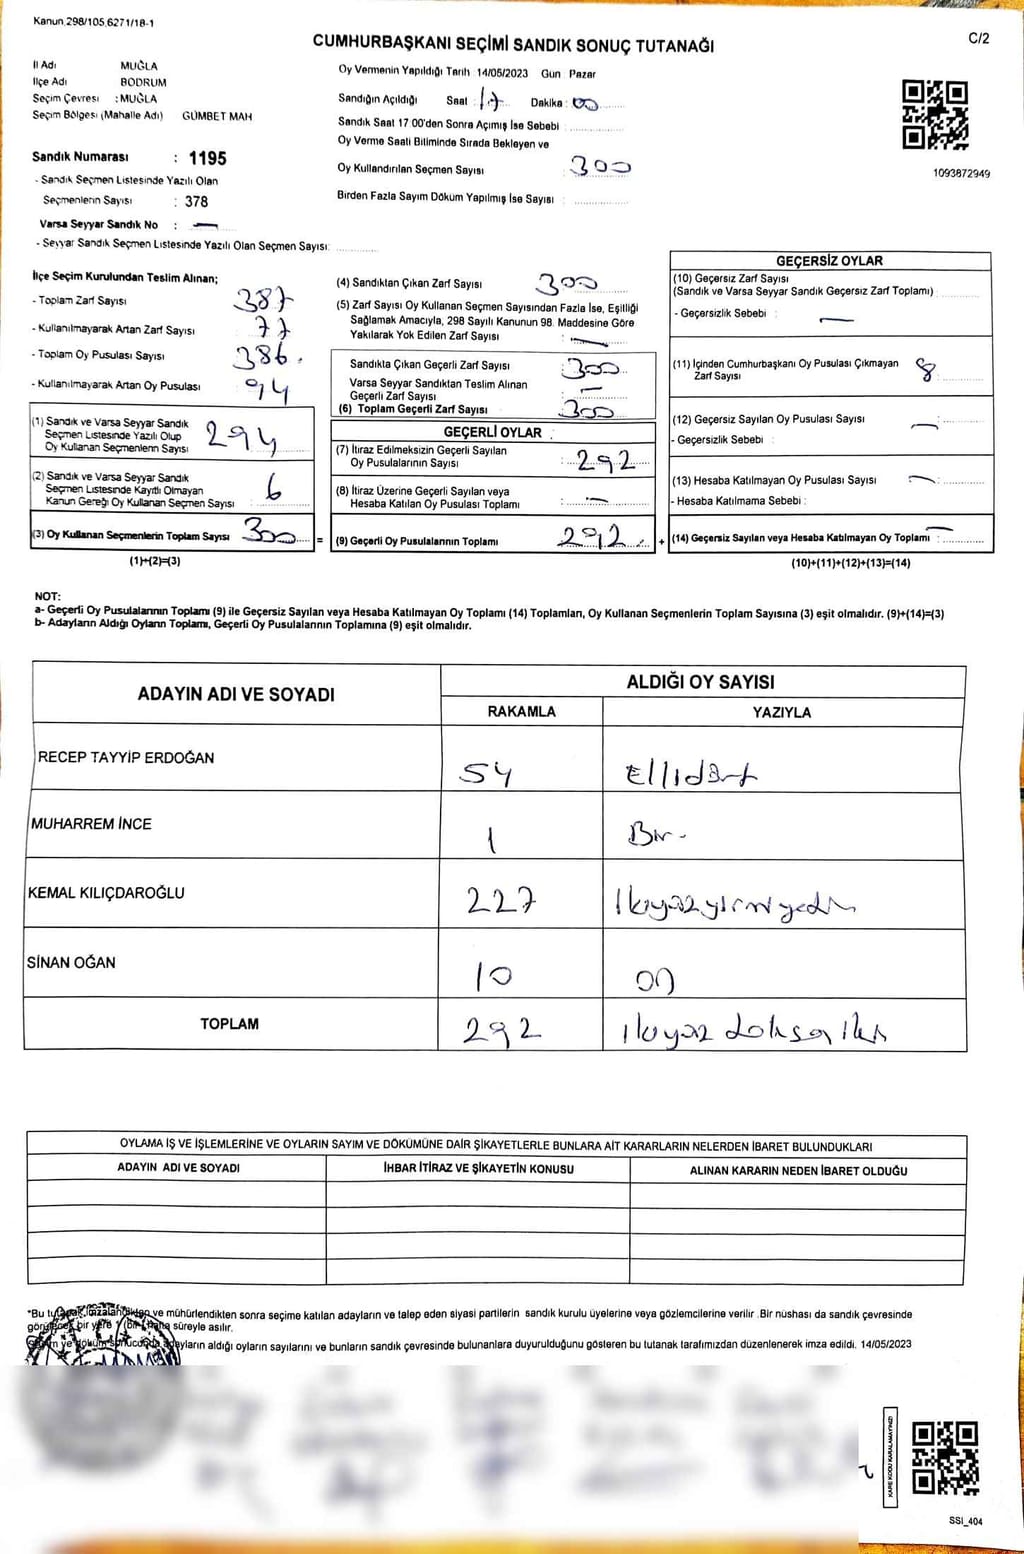 Kanun.298/105,6271/18-1
CUMHURBAŞKANI SEÇİMİ SANDIK SONUÇ TUTANAĞI
C/2
İl Adı MUĞLA
İlçe Adı BODRUM
Seçim Çevresi : MUĞLA
Seçim Bölgesi (Mahalle Adı) GÜMBET MAH
Sandık Numarası : 1195
- Sandık Seçmen Listesinde Yazılı Olan
Seçmenlerin Sayısı : 378
Varsa Seyyar Sandık No : —
- Seyyar Sandık Seçmen Listesinde Yazılı Olan Seçmen Sayısı:
Oy Vermenin Yapıldığı Tarih 14/05/2023 Gün Pazar
Sandığın Açıldığı Saat : 17 Dakika : 00
Sandık Saat 17 00'den Sonra Açımış İse Sebebi :
Oy Verme Saati Bitiminde Sırada Bekleyen ve
Oy Kullandırılan Seçmen Sayısı : 300
Birden Fazla Sayım Döküm Yapılmış İse Sayısı :
1093872949
İlçe Seçim Kurulundan Teslim Alınan;
- Toplam Zarf Sayısı 387
- Kullanılmayarak Artan Zarf Sayısı 77
- Toplam Oy Pusulası Sayısı 386
- Kullanılmayarak Artan Oy Pusulası 94
(1) Sandık ve Varsa Seyyar Sandık
Seçmen Listesinde Yazılı Olup
Oy Kullanan Seçmenlerin Sayısı 294
(2) Sandık ve Varsa Seyyar Sandık
Seçmen Listesinde Kayıtlı Olmayan
Kanun Gereği Oy Kullanan Seçmen Sayısı : 6
(3) Oy Kullanan Seçmenlerin Toplam Sayısı 300 =
(1)+(2)=(3)
(4) Sandıktan Çıkan Zarf Sayısı 300
(5) Zarf Sayısı Oy Kullanan Seçmen Sayısından Fazla İse, Eşitliği
Sağlamak Amacıyla, 298 Sayılı Kanunun 98. Maddesine Göre
Yakılarak Yok Edilen Zarf Sayısı : —
Sandıkta Çıkan Geçerli Zarf Sayısı : 300
Varsa Seyyar Sandıktan Teslim Alınan
Geçerli Zarf Sayısı : —
(6) Toplam Geçerli Zarf Sayısı : 300
GEÇERLİ OYLAR
(7) İtiraz Edilmeksizin Geçerli Sayılan
Oy Pusulalarının Sayısı : 292
(8) İtiraz Üzerine Geçerli Sayılan veya
Hesaba Katılan Oy Pusulası Toplamı : —
(9) Geçerli Oy Pusulalarının Toplamı 292 +
GEÇERSİZ OYLAR
(10) Geçersiz Zarf Sayısı
(Sandık ve Varsa Seyyar Sandık Geçersiz Zarf Toplamı) :
- Geçersizlik Sebebi : —
(11) İçinden Cumhurbaşkanı Oy Pusulası Çıkmayan
Zarf Sayısı : 8
(12) Geçersiz Sayılan Oy Pusulası Sayısı : —
- Geçersizlik Sebebi :
(13) Hesaba Katılmayan Oy Pusulası Sayısı : —
- Hesaba Katılmama Sebebi :
(14) Geçersiz Sayılan veya Hesaba Katılmayan Oy Toplamı : —
(10)+(11)+(12)+(13)=(14)
NOT:
a- Geçerli Oy Pusulalarının Toplamı (9) ile Geçersiz Sayılan veya Hesaba Katılmayan Oy Toplamı (14) Toplamları, Oy Kullanan Seçmenlerin Toplam Sayısına (3) eşit olmalıdır. (9)+(14)=(3)
b- Adayların Aldığı Oyların Toplamı, Geçerli Oy Pusulalarının Toplamına (9) eşit olmalıdır.
ADAYIN ADI VE SOYADI ALDIĞI OY SAYISI
RAKAMLA YAZIYLA
RECEP TAYYİP ERDOĞAN 54 Ellidört
MUHARREM İNCE 1 Bir -
KEMAL KILIÇDAROĞLU 227 İkiyüzyirmiyedi
SİNAN OĞAN 10 on
TOPLAM 292 ikiyüz doksan iki
OYLAMA İŞ VE İŞLEMLERİNE VE OYLARIN SAYIM VE DÖKÜMÜNE DAİR ŞİKAYETLERLE BUNLARA AİT KARARLARIN NELERDEN İBARET BULUNDUKLARI
ADAYIN ADI VE SOYADI İHBAR İTİRAZ VE ŞİKAYETİN KONUSU ALINAN KARARIN NEDEN İBARET OLDUĞU
*Bu tutanak imzalandıktan ve mühürlendikten sonra seçime katılan adayların ve talep eden siyasi partilerin sandık kurulu üyelerine veya gözlemcilerine verilir .Bir nüshası da sandık çevresinde
görülecek bir yere 1 (bir) hafta süreyle asılır.
Sayım ve döküm sonucunda adayların aldığı oyların sayılarını ve bunların sandık çevresinde bulunanlara duyurulduğunu gösteren bu tutanak tarafımızdan düzenlenerek imza edildi. 14/05/2023
KARE KODU KARALAMAYINIZ!
SSI_404